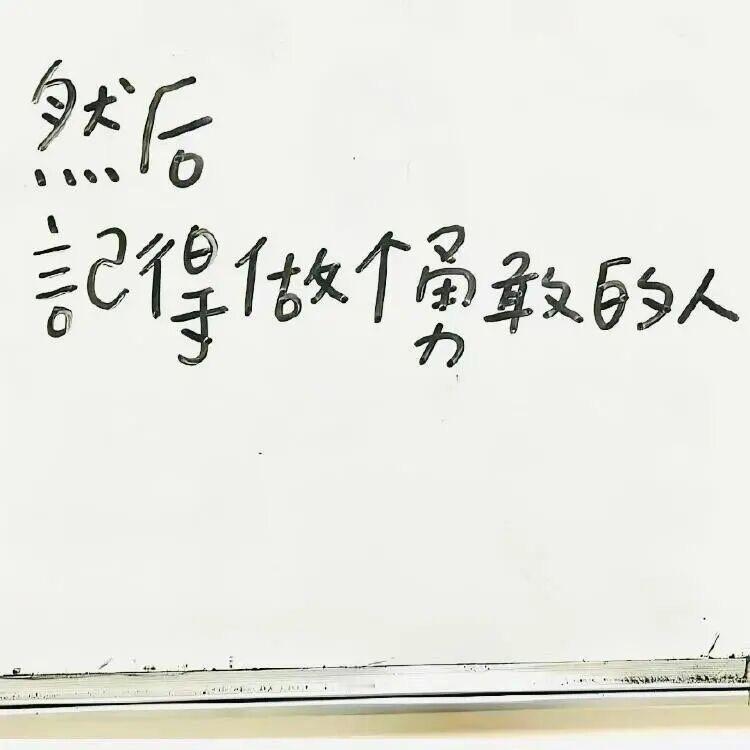 然后
記得做个勇敢的人